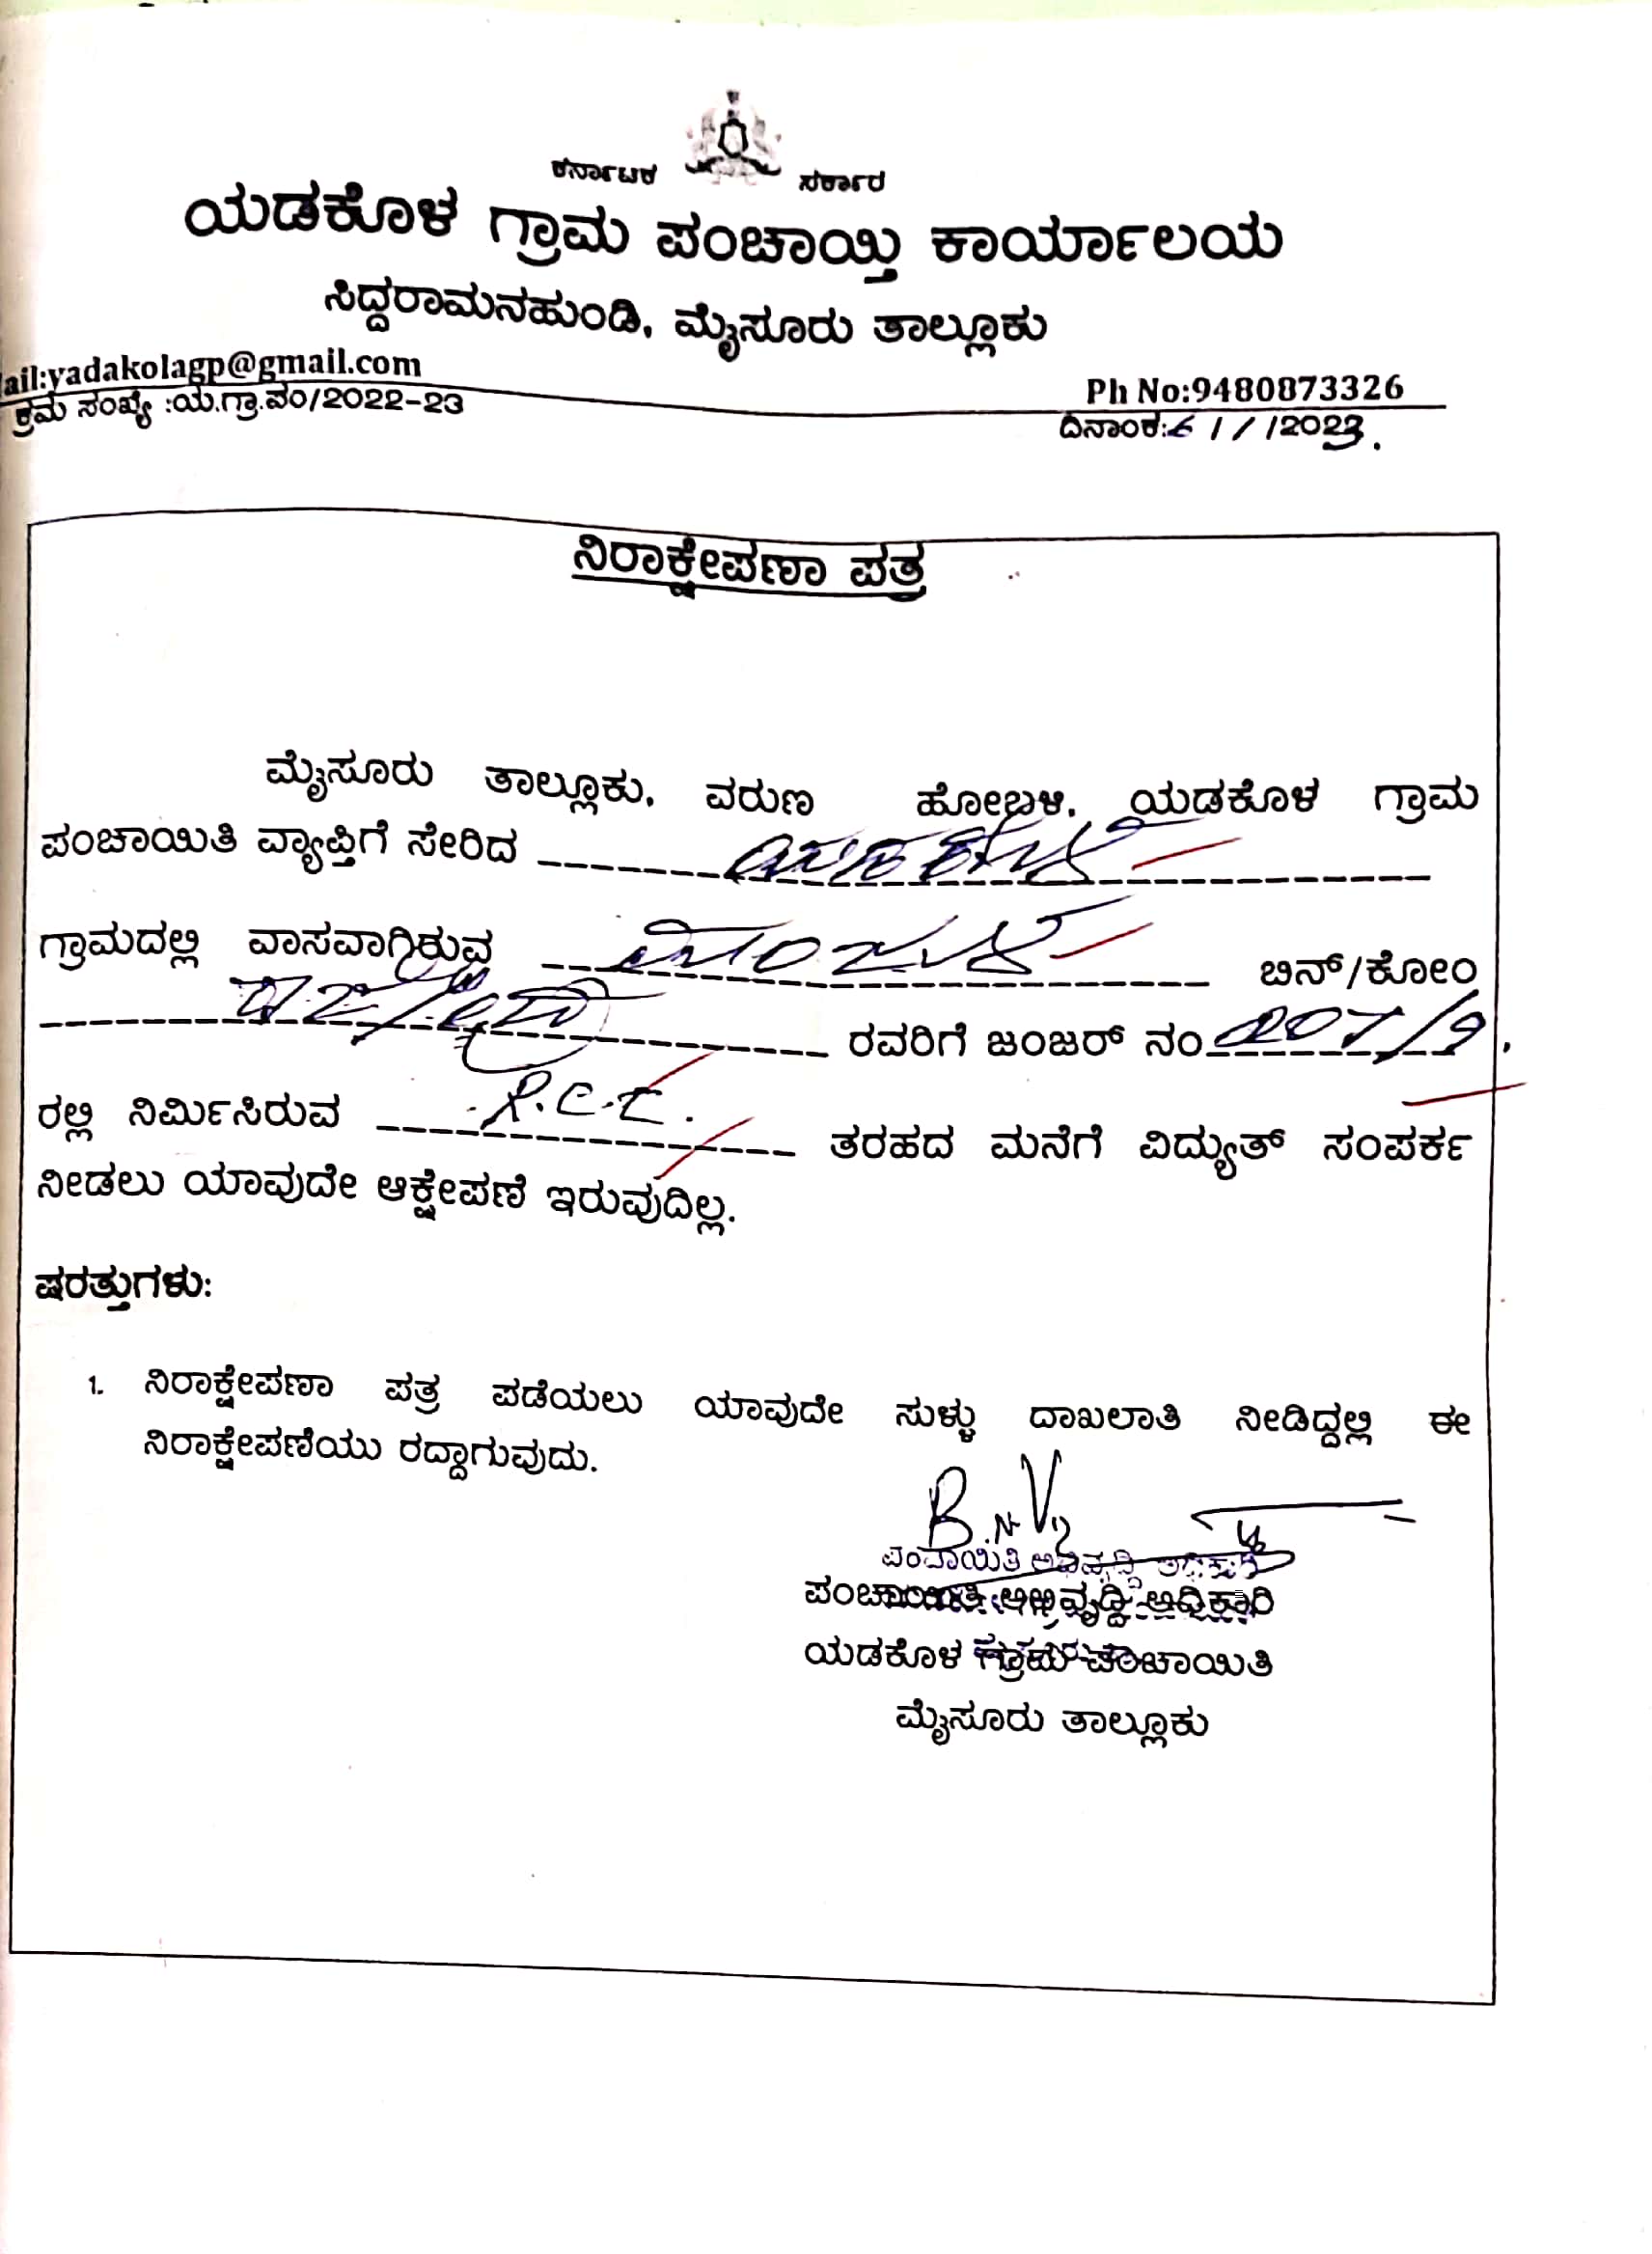 ಕರ್ನಾಟಕ ಸರ್ಕಾರ
ಯಡಕೊಳ ಗ್ರಾಮ ಪಂಚಾಯ್ತಿ ಕಾರ್ಯಾಲಯ
ಸಿದ್ದರಾಮನಹುಂಡಿ, ಮೈಸೂರು ತಾಲ್ಲೂಕು
ail:yadakolagp@gmail.com Ph No:9480873326
ಕ್ರಮ ಸಂಖ್ಯೆ :ಯ.ಗ್ರಾ.ಪಂ/2022-23 ದಿನಾಂಕ:6/1/2023.
ನಿರಾಕ್ಷೇಪಣಾ ಪತ್ರ
ಮೈಸೂರು ತಾಲ್ಲೂಕು, ವರುಣ ಹೋಬಳಿ, ಯಡಕೊಳ ಗ್ರಾಮ
ಪಂಚಾಯಿತಿ ವ್ಯಾಪ್ತಿಗೆ ಸೇರಿದ
ಗ್ರಾಮದಲ್ಲಿ ವಾಸವಾಗಿರುವ ಬಿನ್/ಕೋಂ
ರವರಿಗೆ ಜಂಜರ್ ನಂ
ರಲ್ಲಿ ನಿರ್ಮಿಸಿರುವ R.C.C. ತರಹದ ಮನೆಗೆ ವಿದ್ಯುತ್ ಸಂಪರ್ಕ
ನೀಡಲು ಯಾವುದೇ ಆಕ್ಷೇಪಣೆ ಇರುವುದಿಲ್ಲ.
ಷರತ್ತುಗಳು:
1. ನಿರಾಕ್ಷೇಪಣಾ ಪತ್ರ ಪಡೆಯಲು ಯಾವುದೇ ಸುಳ್ಳು ದಾಖಲಾತಿ ನೀಡಿದ್ದಲ್ಲಿ ಈ
ನಿರಾಕ್ಷೇಪಣೆಯು ರದ್ದಾಗುವುದು.
ಪಂಚಾಯಿತಿ ಅಭಿವೃದ್ಧಿ ಅಧಿಕಾರಿ
ಯಡಕೊಳ ಗ್ರಾಮ ಪಂಚಾಯಿತಿ
ಮೈಸೂರು ತಾಲ್ಲೂಕು